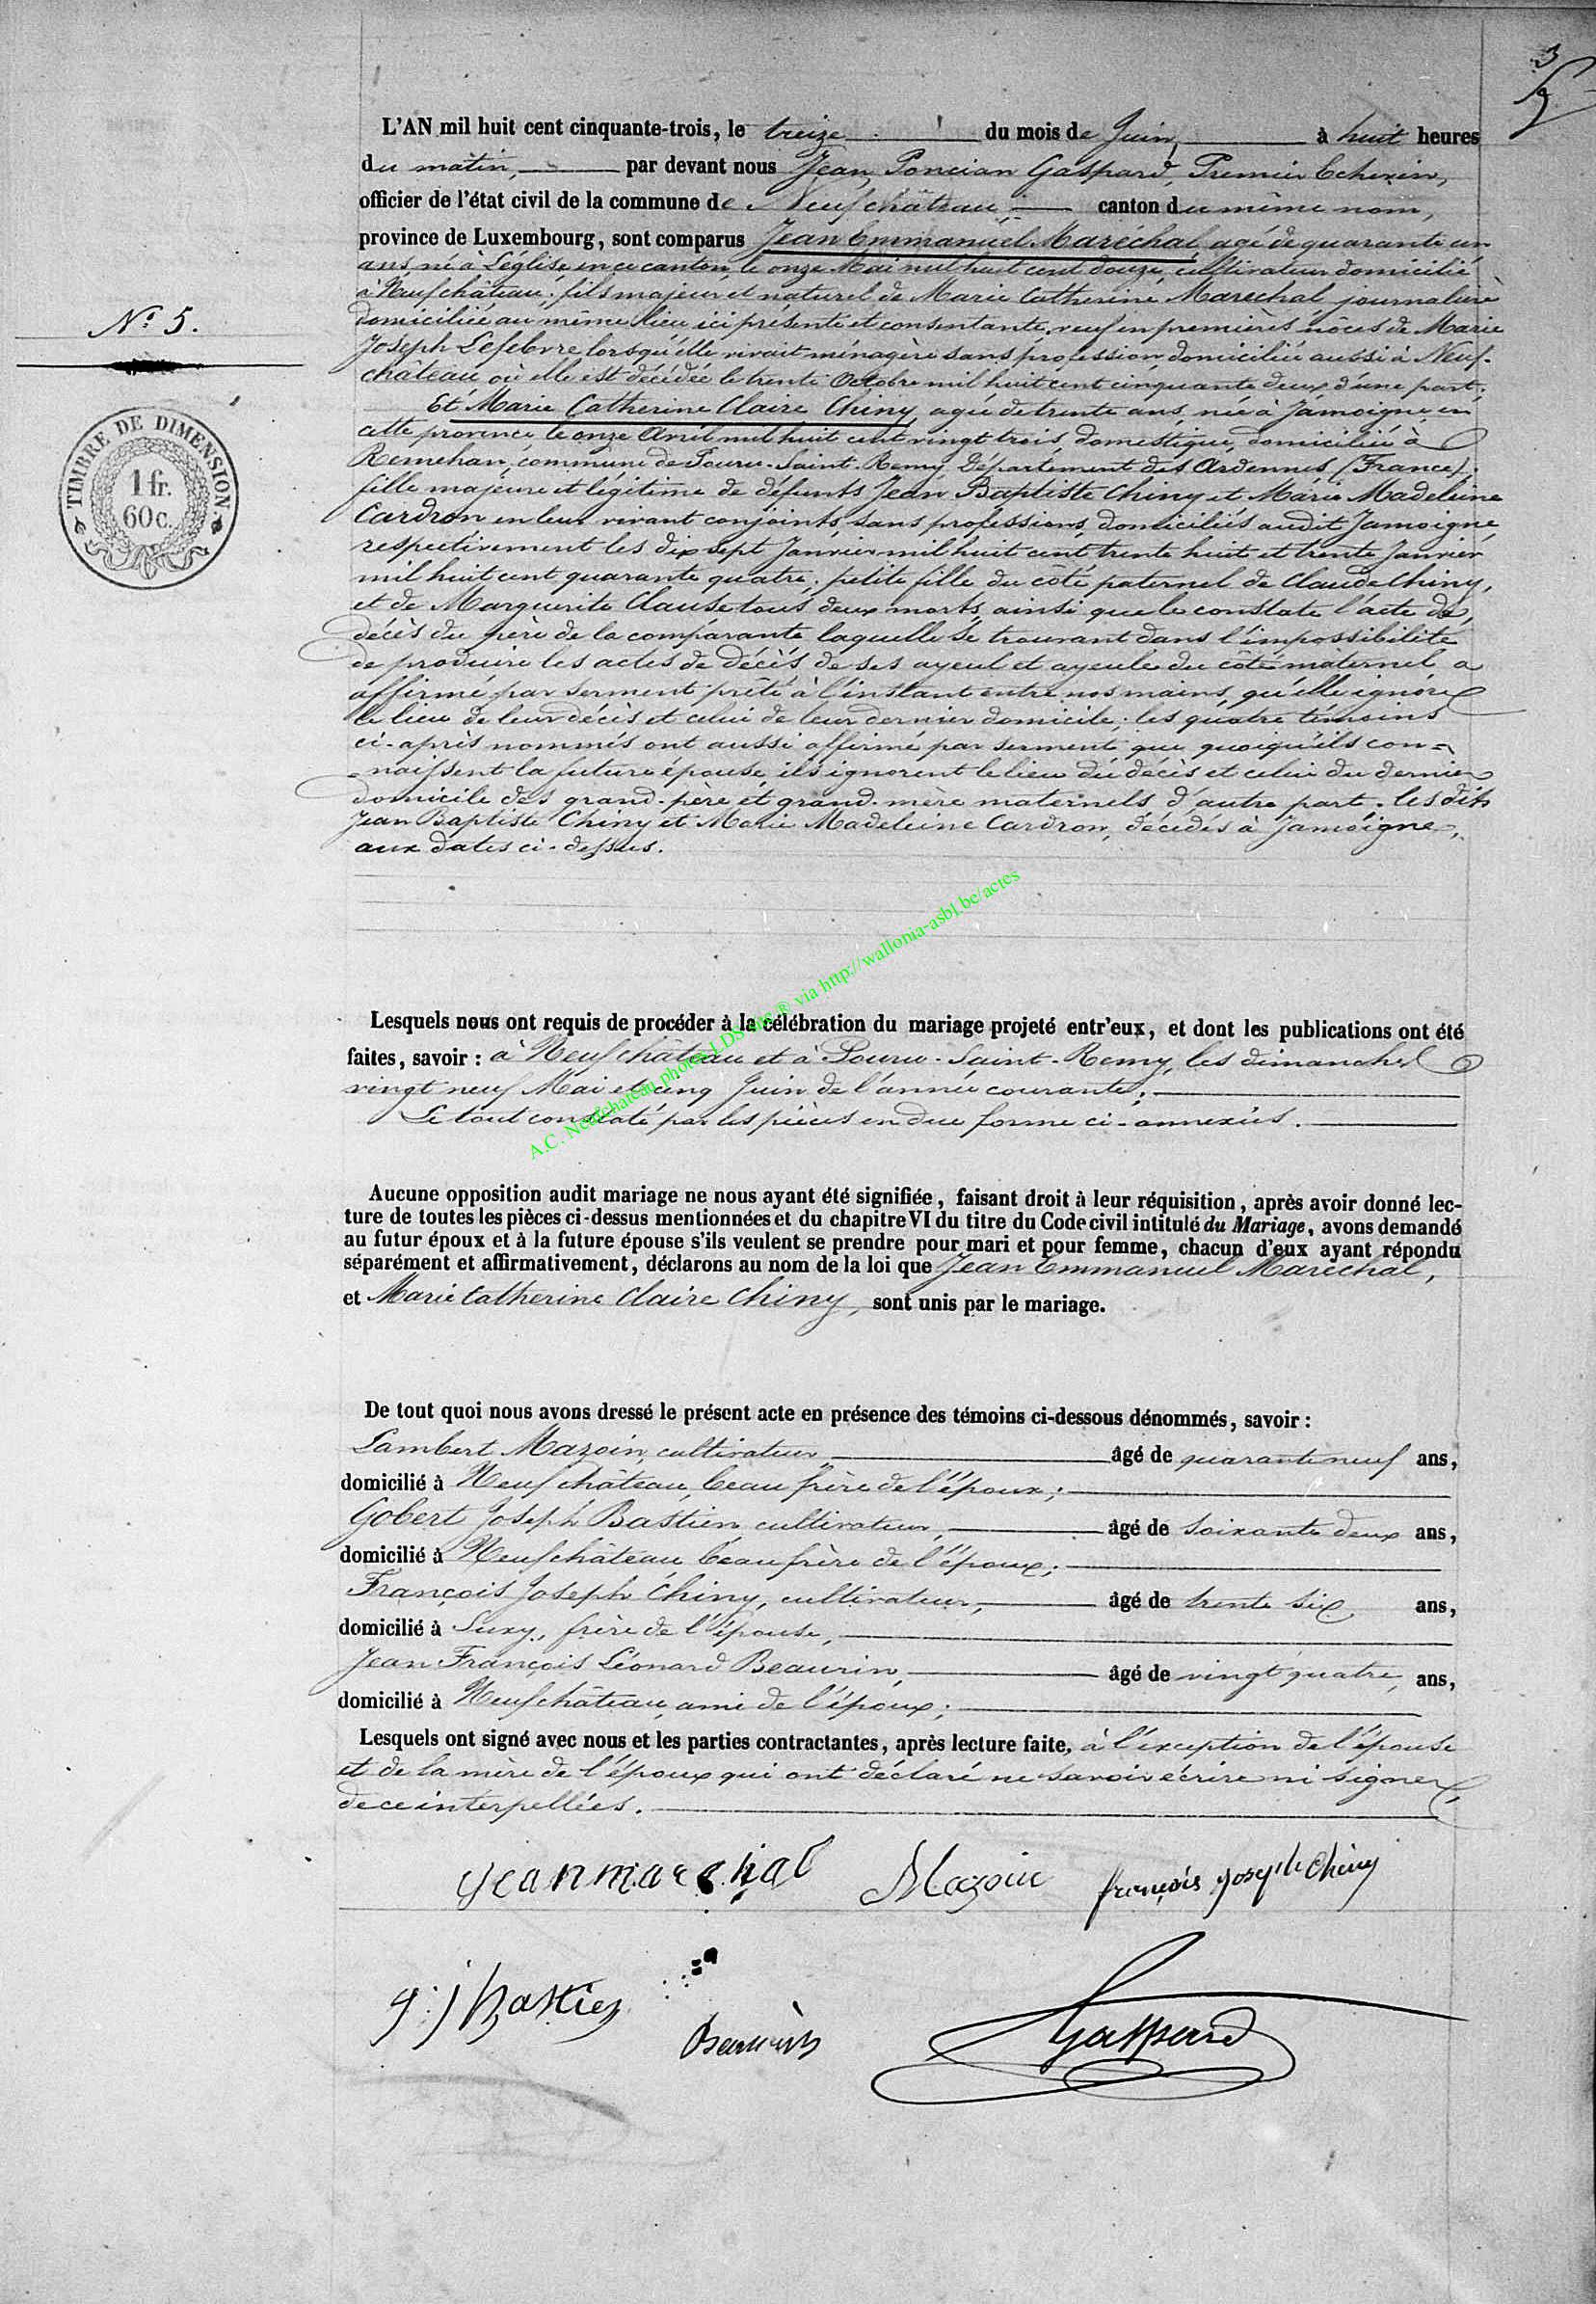 3
L'AN mil huit cent cinquante-trois, le treize du mois de Juin, à huit heures
du matin, par devant nous Jean Poncian Gaspard, Premier Echevin,
officier de l'état civil de la commune de Neufchâteau, canton du même nom,
province de Luxembourg, sont comparus Jean Emmanuel Maréchal, agé de quarante un
ans, né à Léglise, en ce canton, le onze Mai mil huit cent douze, cultivateur domicilié
à Neufchâteau; fils majeur et naturel de Marie Catherine Maréchal journalière
domiciliée au même lieu ici présente et consentante, veuf en premières nôces de Marie
Joseph Lefebvre, lorsqu'elle vivait ménagère sans profession, domiciliée aussi à Neuf-
château, où elle est décédée le trente Octobre mil huit cent cinquante deux d'une part;
N° 5.
Et Marie Catherine Claire Chiny, agée de trente ans, née à Jamoigne, en
cette province le onze Avril mil huit cent vingt trois, domestique, domiciliée à
TIMBRE DE DIMENSION
1 fr.
60 c.
Remehan, commune de Pouru-Saint-Remy, Département des Ardennes, (France);
fille majeure et légitime de défunts Jean Baptiste Chiny et Marie Madeleine
Cardron en leur vivant conjoints, sans professions, domiciliés audit Jamoigne,
respectivement les dix sept Janvier mil huit cent trente huit et trente Janvier
mil huit cent quarante quatre; petite fille du côté paternel de Claude Chiny,
et de Marguerite Clause tous deux morts, ainsi que le constate l'acte de
décès du père de la comparante laquelle se trouvant dans l'impossibilité
de produire les actes de décès de ses ayeul et ayeule du côté maternel a
affirmé par serment prêté à l'instant entre nos mains, qu'elle ignore
le lieu de leur décès et celui de leur dernier domicile; les quatre témoins
ci-après nommés ont aussi affirmé par serment que quoiqu'ils con-
-naissent la future épouse, ils ignorent le lieu du décès et celui du dernier
domicile des grand-père et grand-mère maternels d'autre part. les dits
Jean Baptiste Chiny et Marie Madeleine Cardron, décédés à Jamoigne,
aux dates ci-dessus.
A.C. Neufchateau photos LDS arc ® via http://wallonia-asbl.be/actes
Lesquels nous ont requis de procéder à la célébration du mariage projeté entr'eux, et dont les publications ont été
faites, savoir : à Neufchâteau et à Pouru-Saint-Remy, les dimanches
vingt neuf Mai et cinq Juin de l'année courante;
Le tout constaté par les pièces en due forme ci-annexées.
Aucune opposition audit mariage ne nous ayant été signifiée, faisant droit à leur réquisition, après avoir donné lec-
ture de toutes les pièces ci-dessus mentionnées et du chapitre VI du titre du Code civil intitulé du Mariage, avons demandé
au futur époux et à la future épouse s'ils veulent se prendre pour mari et pour femme, chacun d'eux ayant répondu
séparément et affirmativement, déclarons au nom de la loi que Jean Emmanuel Maréchal,
et Marie Catherine Claire Chiny, sont unis par le mariage.
De tout quoi nous avons dressé le présent acte en présence des témoins ci-dessous dénommés, savoir :
Lambert Mazoin, cultivateur, âgé de quarante neuf ans,
domicilié à Neufchâteau, beau frère de l'époux;
Gobert Joseph Bastien, cultivateur, âgé de soixante deux ans,
domicilié à Neufchâteau, beau frère de l'époux;
François Joseph Chiny, cultivateur, âgé de trente six ans,
domicilié à Suxy, frère de l'épouse,
Jean François Léonard Beaurin, âgé de vingt quatre, ans,
domicilié à Neufchâteau, ami de l'époux;
Lesquels ont signé avec nous et les parties contractantes, après lecture faite, à l'exception de l'épouse
et de la mère de l'époux qui ont déclaré ne savoir écrire ni signer
de ce interpellées.
Jean marechal Mazoin françois joseph chiny
g: j bastien
Beaurin Gaspard